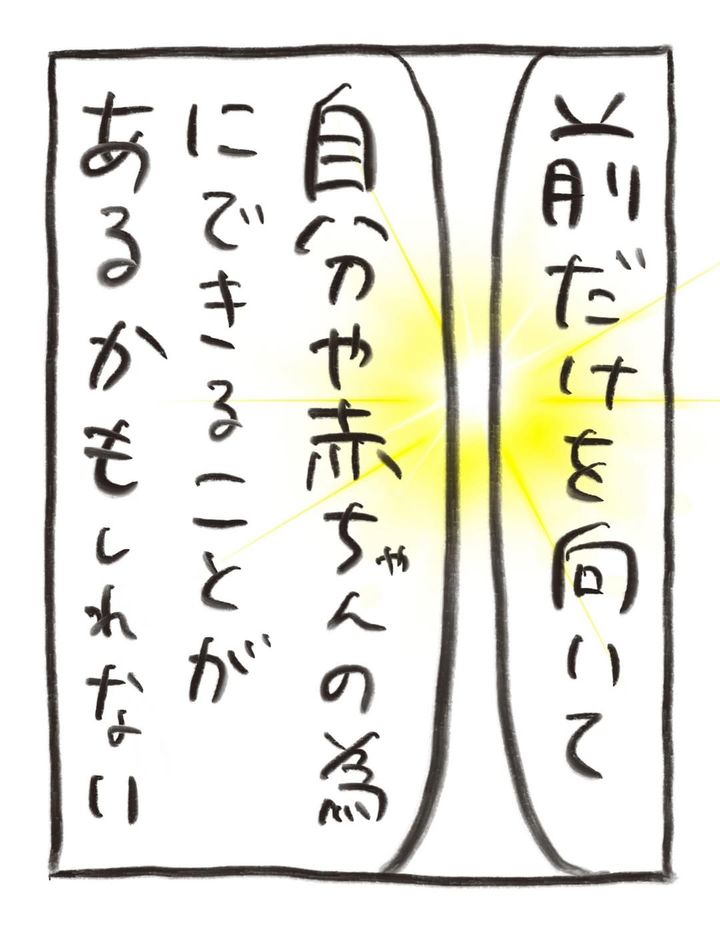 前だけを向いて
自分や赤ちゃんの為
にできることが
あるかもしれない